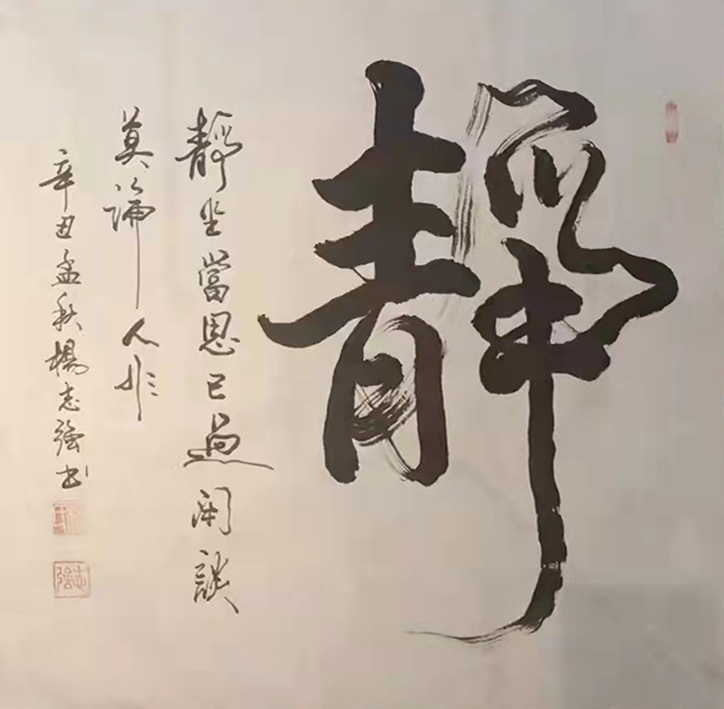 靜
靜坐當思己過閑談
莫論人非
辛丑孟秋楊志强书